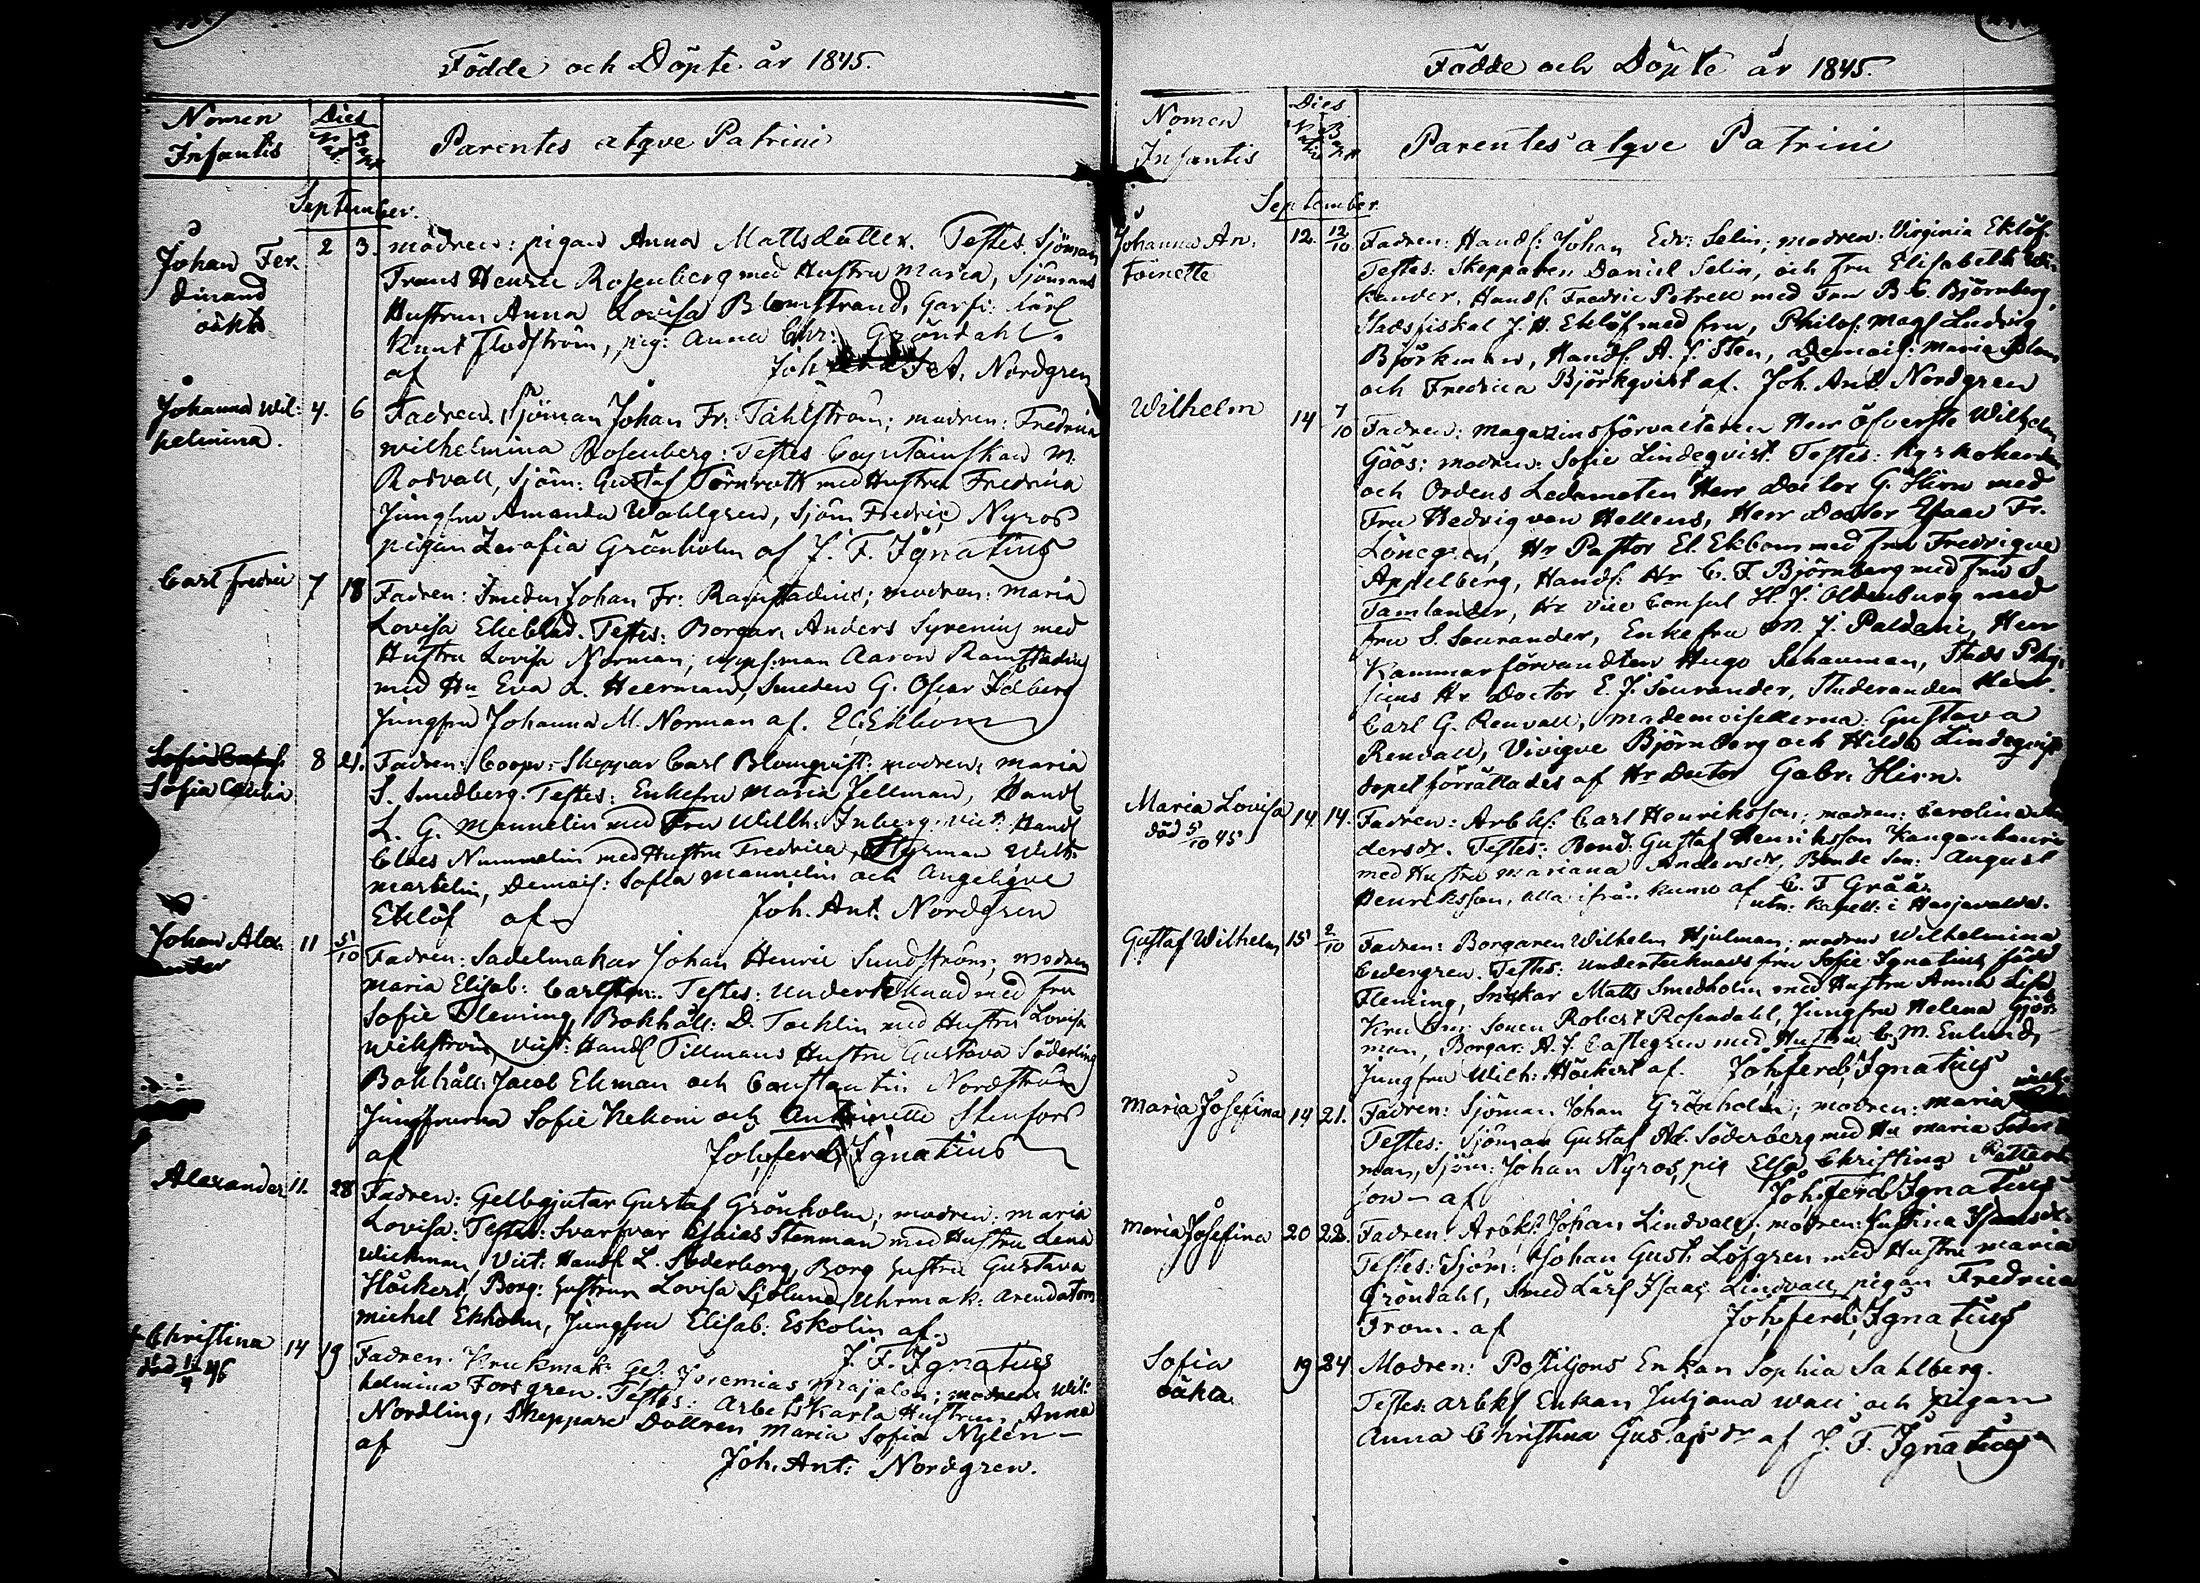 Födde och Döpte år 1845.
Nomen Infantis
Dies
Nat.
Bapt.
Parentes atqve Patrini
September.
Johan Fer-
dinand
oäkta
2 3.
modren: pigan Anna Mattsdotter. Testes. Sjöman
Frans Henric Rosenberg med Hustru Maria, Sjömans
Hustrun Anna Lovisa Blomstrand, Garfv: Lärl
Knut Flodström, pig: Anna Chr: Gröndahl.
af Joh A. Nordgren
Johanna Wil-
helmina.
4. 6
Fadren. Sjöman Johan Fr: Tählström; modren: Fredrica
Wilhelmina Rosenberg: Testes Capitainskan M.
Rodvall, Sjöm: Gustaf Törnroth med Hustru Fredrica
Jungfru Amanda Wahlgren, Sjöm Fredric Nyros
pigan Serafia Grönholm af J. F. Ignatius
Carl Fredric
7 18
Fadren: Smeden Johan Fr: Ramstadius; modren: Maria
Lovisa Ekeblad. Testes: Borgar: Anders Syrenius med
Hustru Lovisa Norman; uppsman Aaron Ramstadius
med Hu Eva L. Heerman, Smeden G. Oscar Idberg
Jungfru Johanna M. Norman af. El. Ekbom
Sofia Cecilia
8 21.
Fadren: Coopv: Skeppar Carl Blomqvist: modren: Maria
S. Smedberg. Testes: Enkefru Maria Jellman, Handl
L. G. Mannelin med Fru Wilh: Inberg, Vict: Handl
Claes Nummelin med Hustru Fredrica, Styrman Wilh:
Martelin, Demois: Sofia Mannelin och Angeliqve
Eklöf af Joh. Ant. Nordgren
Johan Alex-
ander
11 5/10
Fadren: Sadelmakar Johan Henric Sundström; modren
Maria Elisab: Carlsten. Testes: Undertecknad med fru
Sofie Fleming, Bokhåll: D. Tocklin med Hustru Lovisa
Wikström, Vict: Handl Tillmans Hustru Gustava Söderling
Bokhåll: Jacob Ekman och Constantin Nordström
Jungfruerna Sofie Kekoni och Antoinette Stenfors
af Joh: ferd: Ignatius
Alexander
11. 28
Fadren: Gelbgjutar Gustaf Grönholm; modren: Maria
Lovisa: Testes: Svarfvar Esaias Stenman med Hustru Lena
Wickman, Vict: Handl L. Söderborg, Borg Hustru Gustava
Höckert, Borg: Hustrun Lovisa Sjölund, Uhrmak: Arendatorn
Michel Ekholm, Jungfru Elisab: Eskolin af.
J. F. Ignatius
Christina
14 19
Fadren: Krukmak: Ges: Jeremias Majalen; modren Wil-
helmina Forsgren. Testes: Arbets Karla Hustrun Anna
Nordling, Skeppare Dottren Maria Sofia Nylén
af Joh. Ant: Nordgren.
Födde och Döpte år 1845.
Nomen
Infantis
Dies
Parentes atqve Patrini
September.
Johanna An-
toinette
12. 12/10
Fadren: Handl: Johan Edv: Selin; modren. Virginia Eklöf.
Testes: Skepparen Daniel Selin, och Fru Elisabeth
Handl: Fredric Petrell med Fru B. C. Björnberg,
Stadsfiskal J. H. Eklöf med fru, Philos: Mag: Ludvig
Björkman, Handl: A. J. Sten, Demois: Maria
och Fredrica Björkqvist af. Joh. Ant. Nordgren
Wilhelm
14 7/10
Fadren: Magazinsförvaltaren Herr Öfverste Wilhelm
Göös; modren: Sofie Lindeqvist. Testes: Kyrkoherden
och Ordens Ledamoten Herr Doctor G. Hirn med
Fru Hedvig von Hellens, Herr Doctor Isaac Fr.
Lönegren, Hr Pastor El. Ekbom med fru Fredriqve
Appelberg, Handl: Hr C. F. Björnberg med fru S
Tamlander, Hr Vice Consul H. J. Oldenburg med
fru S. Sourander, Enkefru M. J. Paldani, Herr
Kammarförvandten Hugo Schauman, Stads Phy-
sicus Hr Doctor E. J. Sourander, Studeranden Herr
Carl G. Renvall, Mademoisellerna: Gustava
Renvall, Vivigve Björnberg och Hilda Lindeqvist
dopet förrättades af Hr Doctor Gabr. Hirn.
Maria Lovisa
död 5/10 45
14. 14.
Fadren: Arbks: Carl Henriksson; modren: Carolina An-
dersdr. Testes: Bond: Gustaf Henriksson Kangenhanri
med Hustru Mariana Andersdr, Bonde Son: August
Henriksson, alla ifrån Kumo af C. T Grää.
utn: Kapell: i Harjavalda.
Gustaf Wilhelm
15 2/10
Fadren: Borgaren Wilhelm Hjulman; modren Wilhelmina
Cedergren. Testes: undertecknads fru Sofie Ignatius född
Fleming, Snickar Matts Smedholm med Hustru Anna Lisa
Sonen Robert Rosendahl, Jungfru Helena Sjö-
man, Borgar: A. J. Castegren med Hustru C. M. Enlund,
Jungfru Wilh: Höckert af. Joh: ferd: Ignatius
Maria Josefina
14 21.
Fadren: Sjöman Johan Grönholm; modren: Maria
Testes: Sjöman Gustaf Ad. Söderberg med Hu Maria Söder-
man, Sjöm: Johan Nyros, pig Elsa Christina Petters-
son af Joh: ferd: Ignatius
Maria Josefina
20 22.
Fadren: Arbks: Johan Lindvall; modren: Justina Isaacsdr.
Testes: Sjöm: Johan Gust: Löfgren med Hustru Maria
Gröndahl, Smed Lärl Isaac Lindvall, pigan Fredrica
From. af Joh: ferd: Ignatius
Sofia
oäkta
19 24
Modren: Postiljons Enkan Sophia Sahlberg.
Testes: arbks Enkan Juljana Wass och Pigan
Anna Christina Gustafsdr af J. F. Ignatius